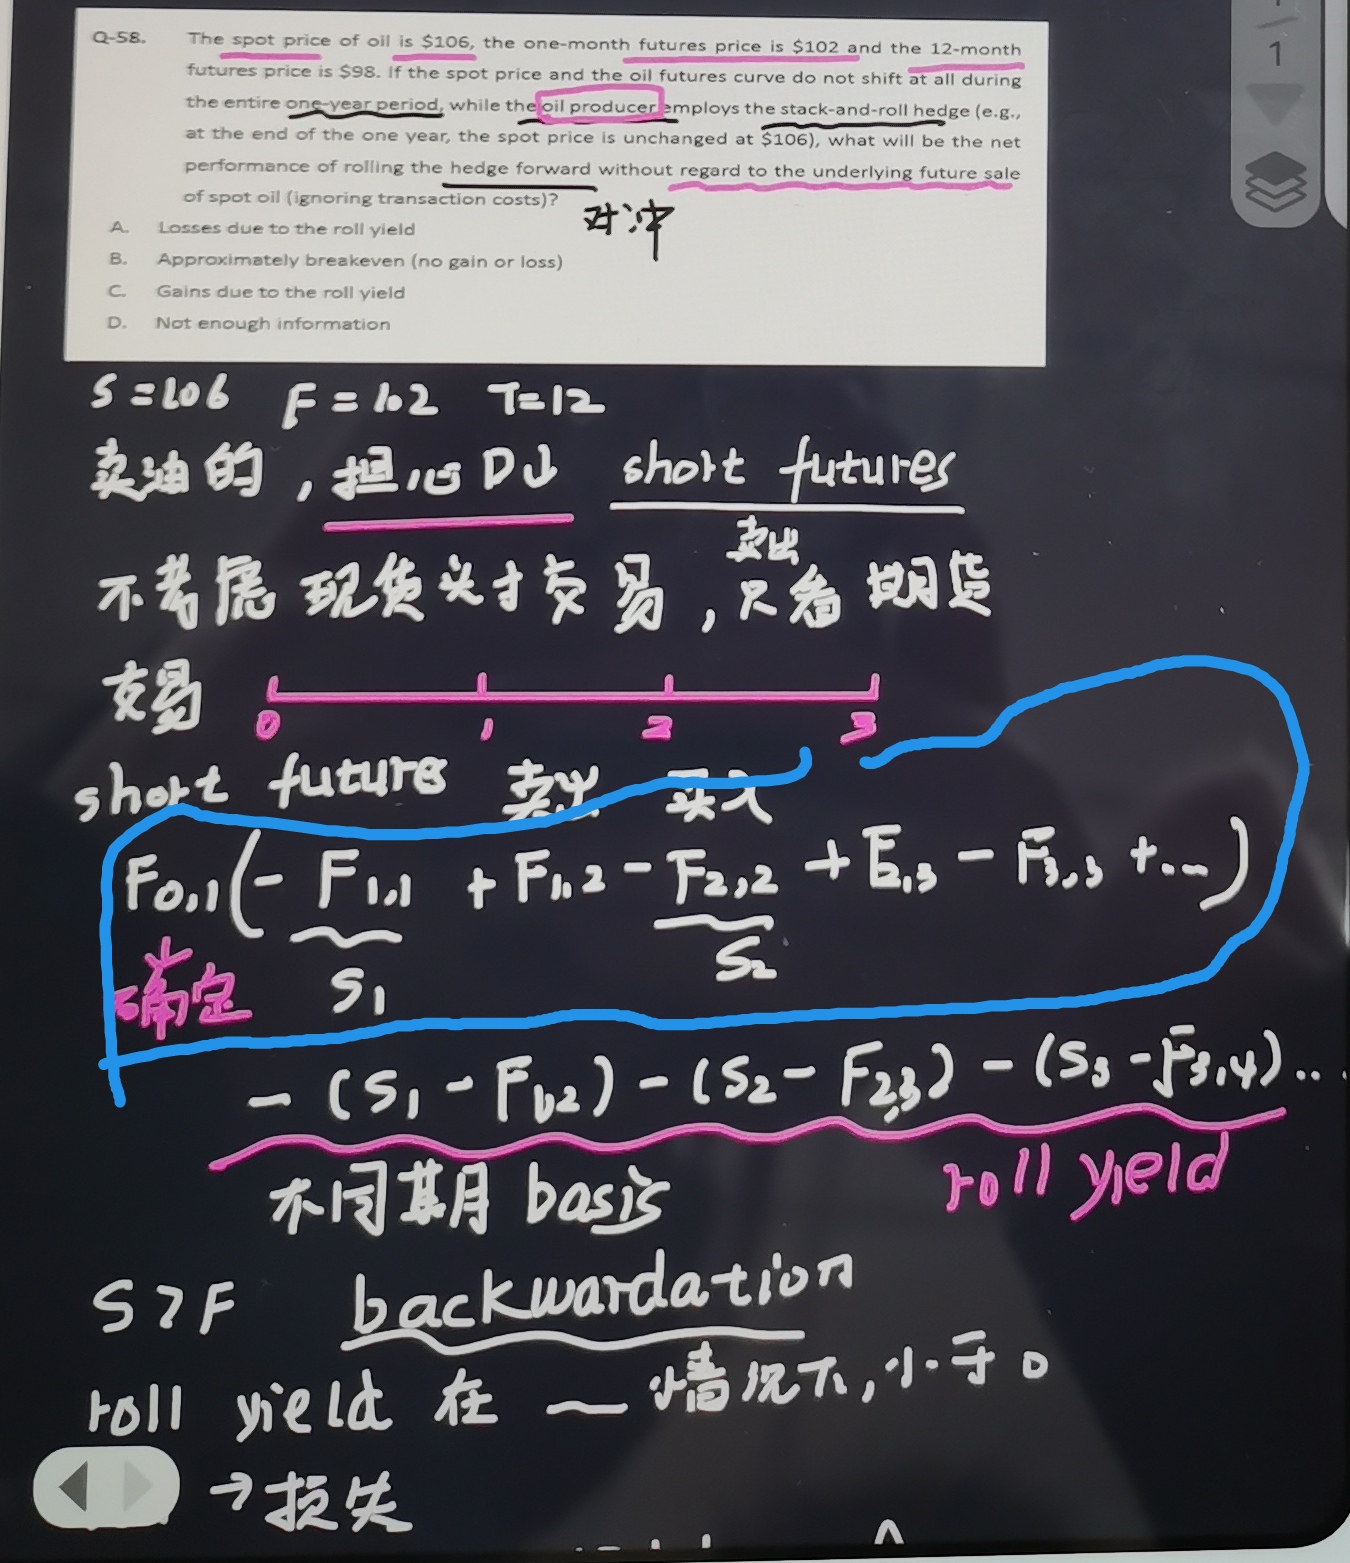 Q-58. The spot price of oil is $106, the one-month futures price is $102 and the 12-month
futures price is $98. If the spot price and the oil futures curve do not shift at all during
the entire one-year period, while the oil producer employs the stack-and-roll hedge (e.g.,
at the end of the one year, the spot price is unchanged at $106), what will be the net
performance of rolling the hedge forward without regard to the underlying future sale
of spot oil (ignoring transaction costs)?
对冲
A. Losses due to the roll yield
B. Approximately breakeven (no gain or loss)
C. Gains due to the roll yield
D. Not enough information
S=106 F=102 T=12
卖油的,担心P↓ short futures
卖出
不考虑现货头寸交易,只看期货
交易
0 1 2 3
short future 卖出 买入
F0,1(- F1,1 + F1,2 - F2,2 + F2,3 - F3,3 +...)
确定 S1 S2
- (S1 - F1,2) - (S2 - F2,3) - (S3 - F3,4)...
不同其月 basis roll yield
S>F backwardation
roll yield 在 ~ 情况下,小于0
→损失
1